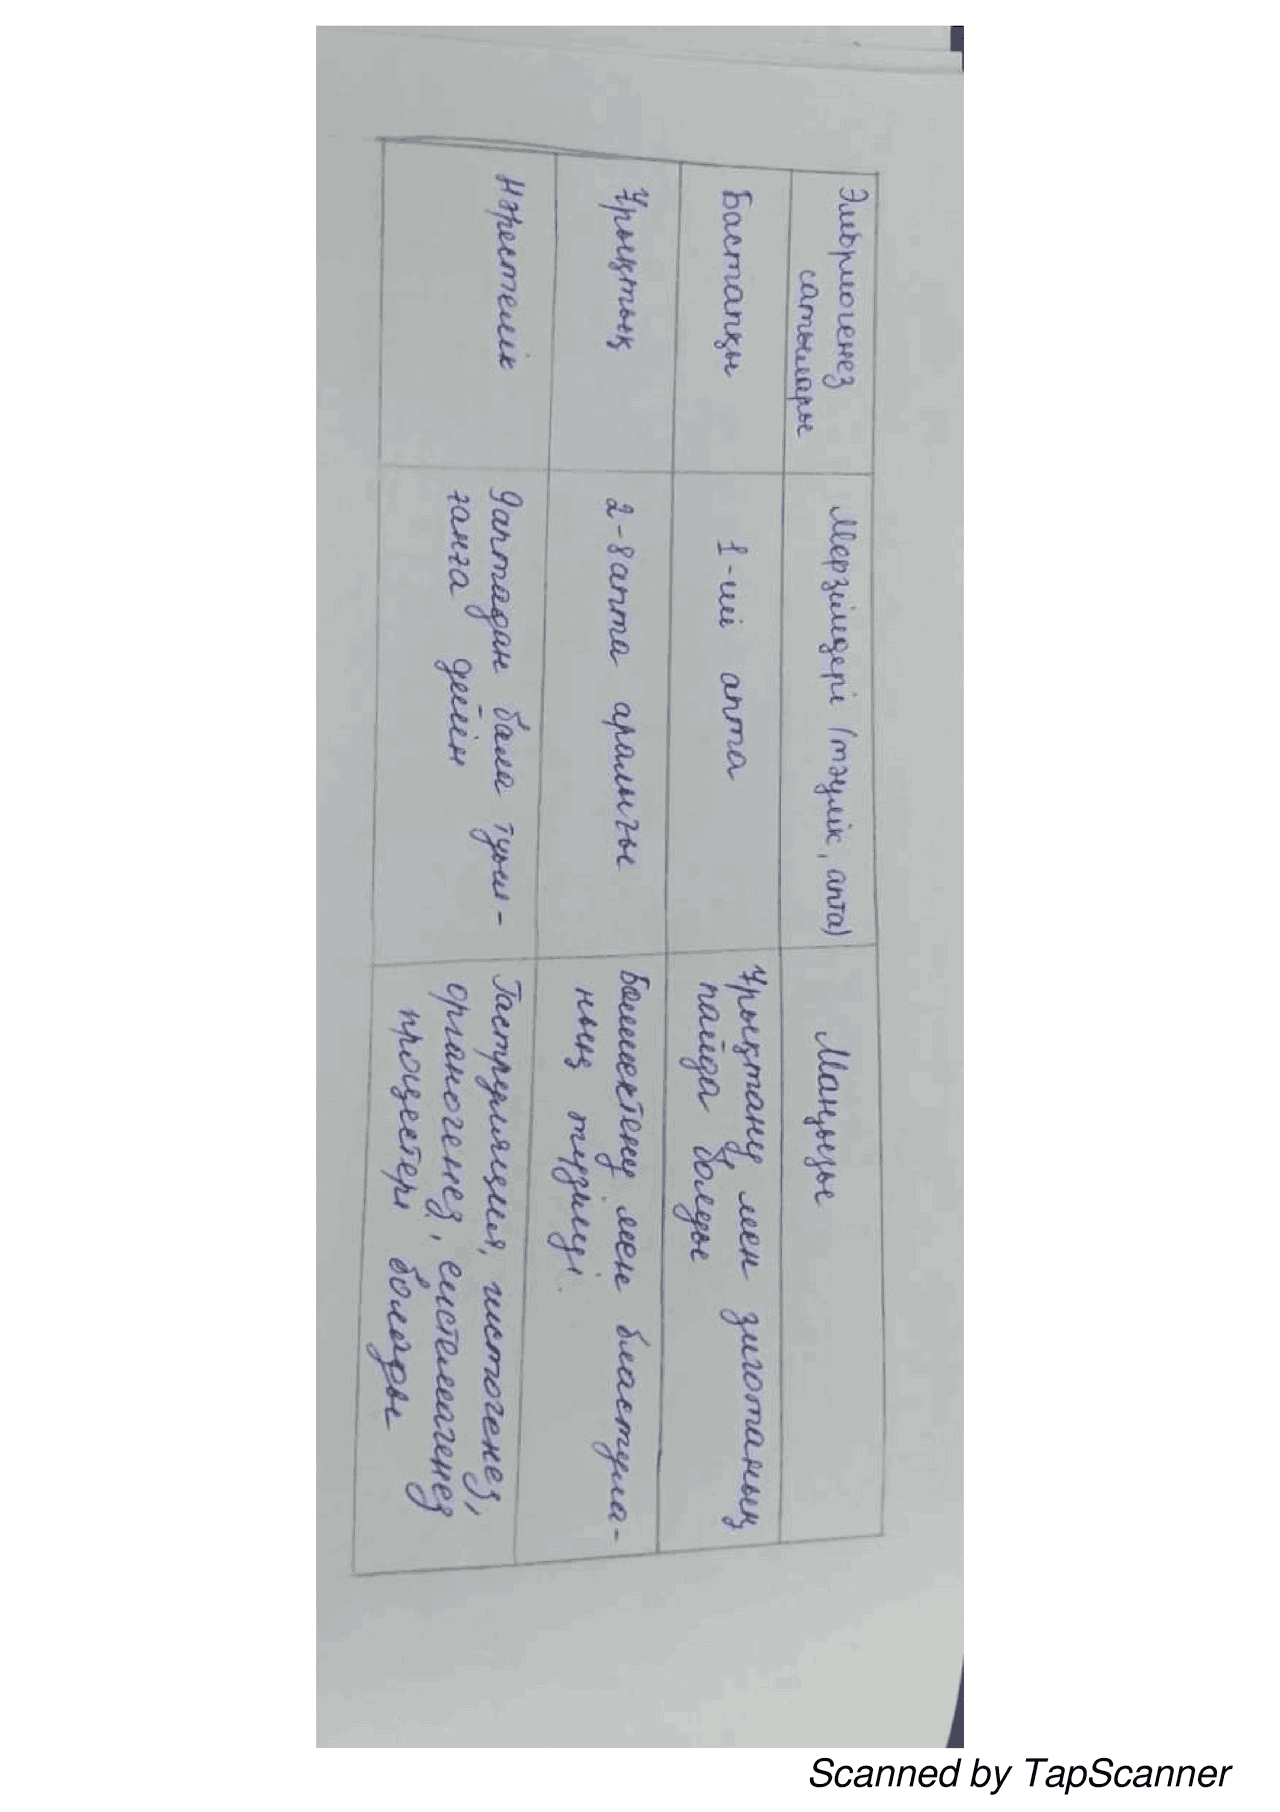 Эмбриогенез
сатылары
Мерзімдері (тәулік, апта)
Маңызы
Бастапқы
1-ші апта
Ұрықтану мен зиготаның
пайда болуы
Ұрықтық
2-8 апта аралығы
Бөлшектену мен бластула-
ның түзілуі.
Нәрестелік
9 аптадан бала туыл-
ғанға дейін
Гаструляция, гистогенез,
органогенез, системагенез
процестері болады
Scanned by TapScanner